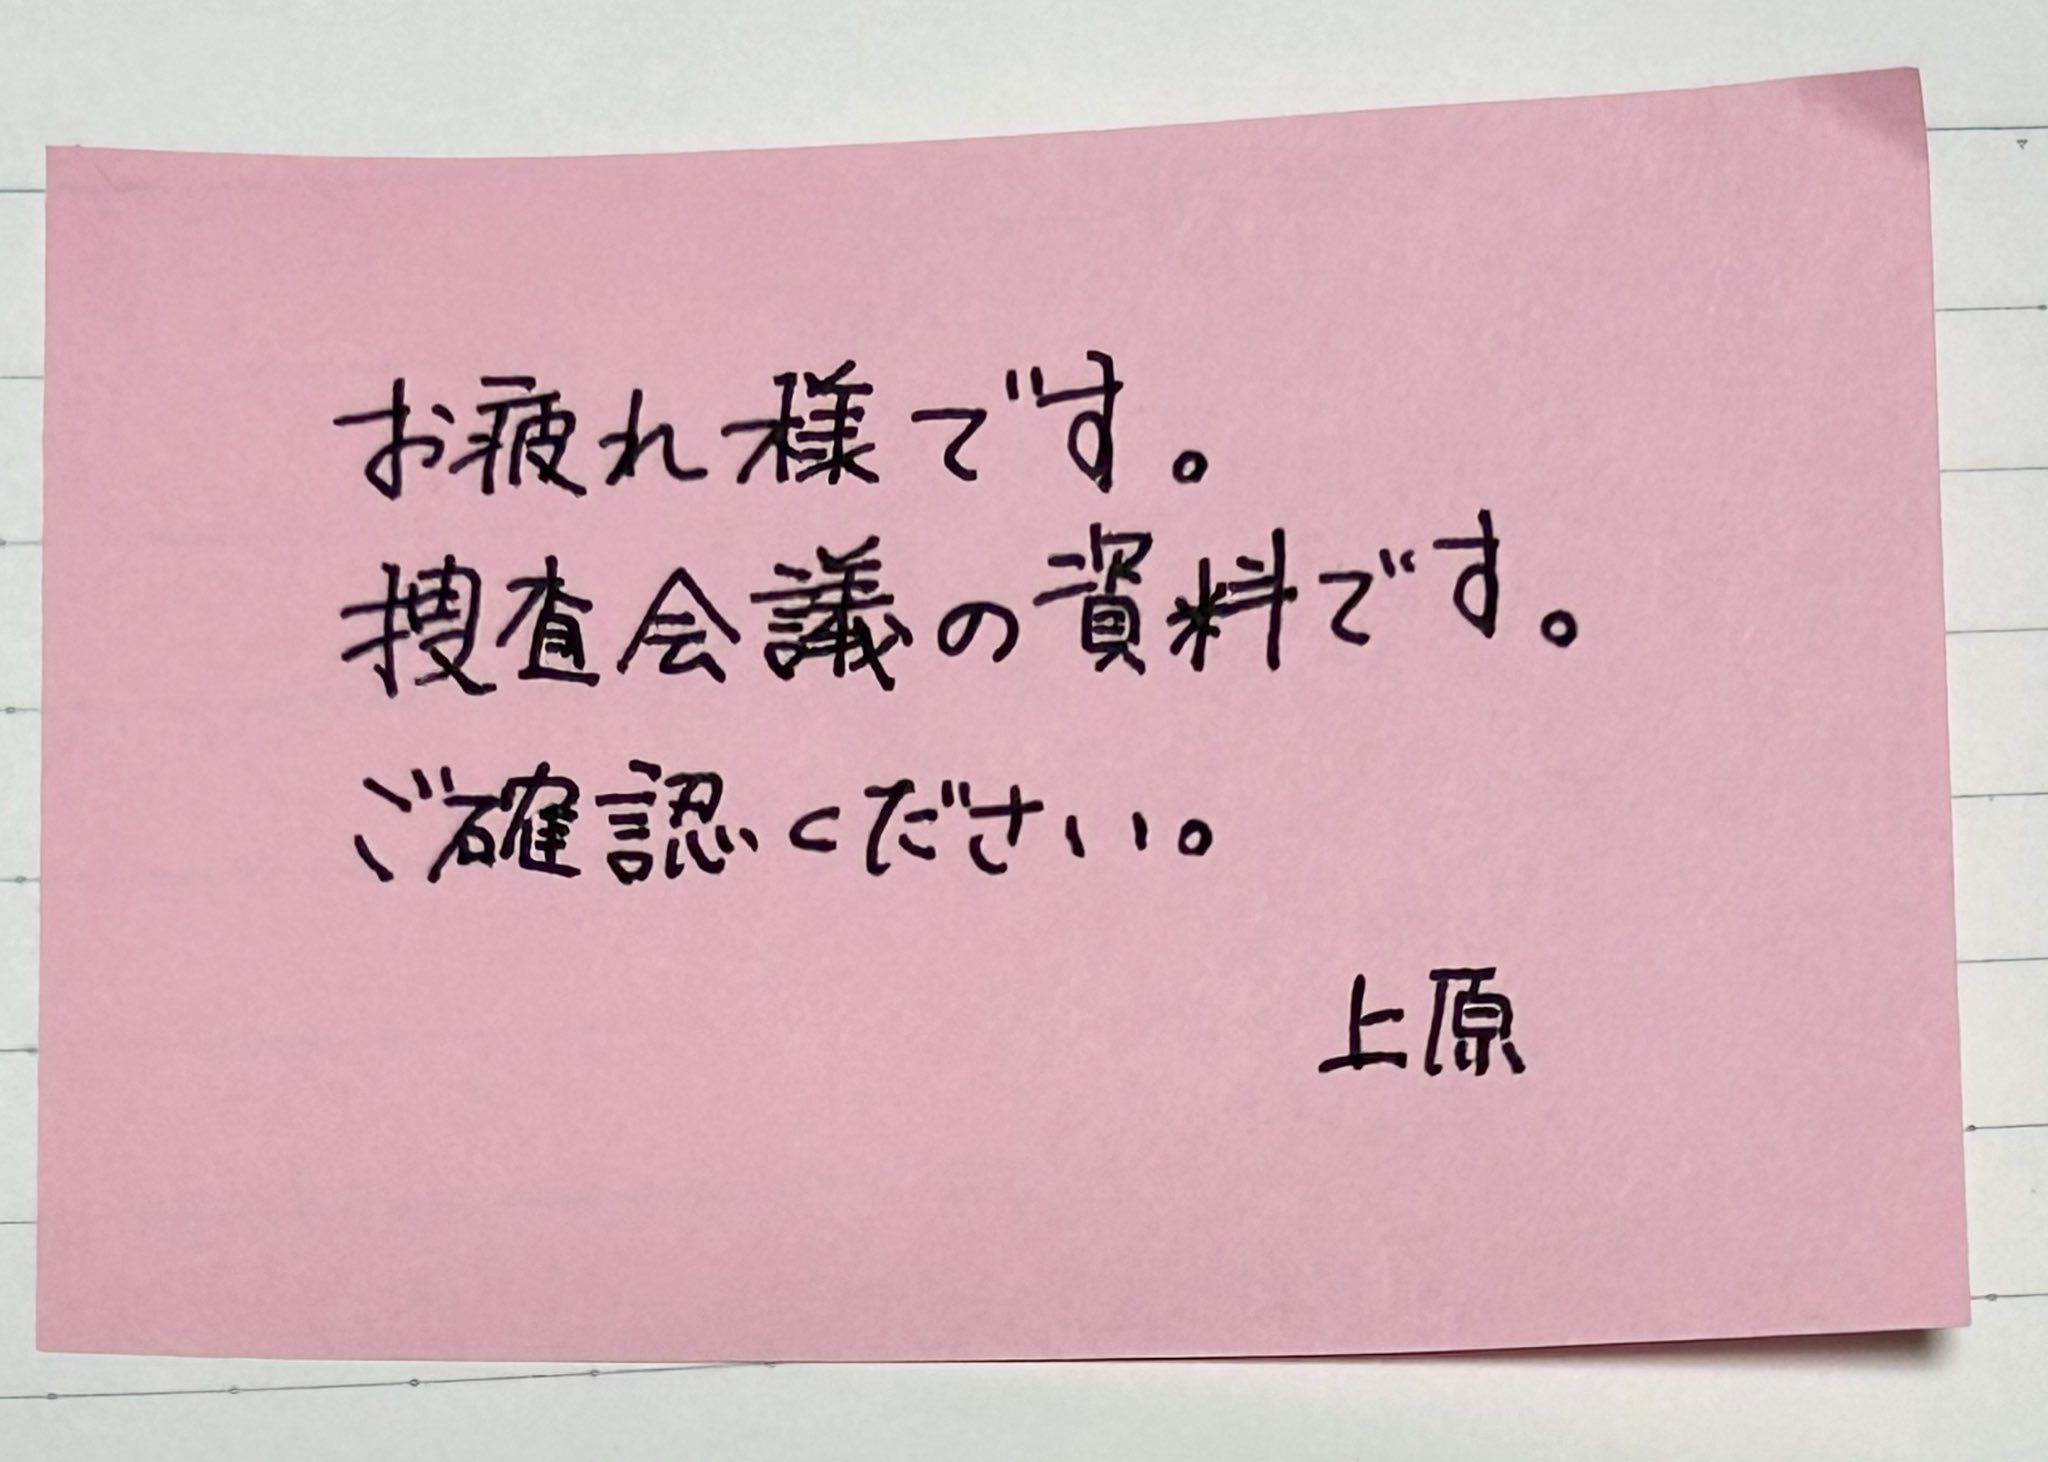 お疲れ様です。
捜査会議の資料です。
ご確認ください。
上原